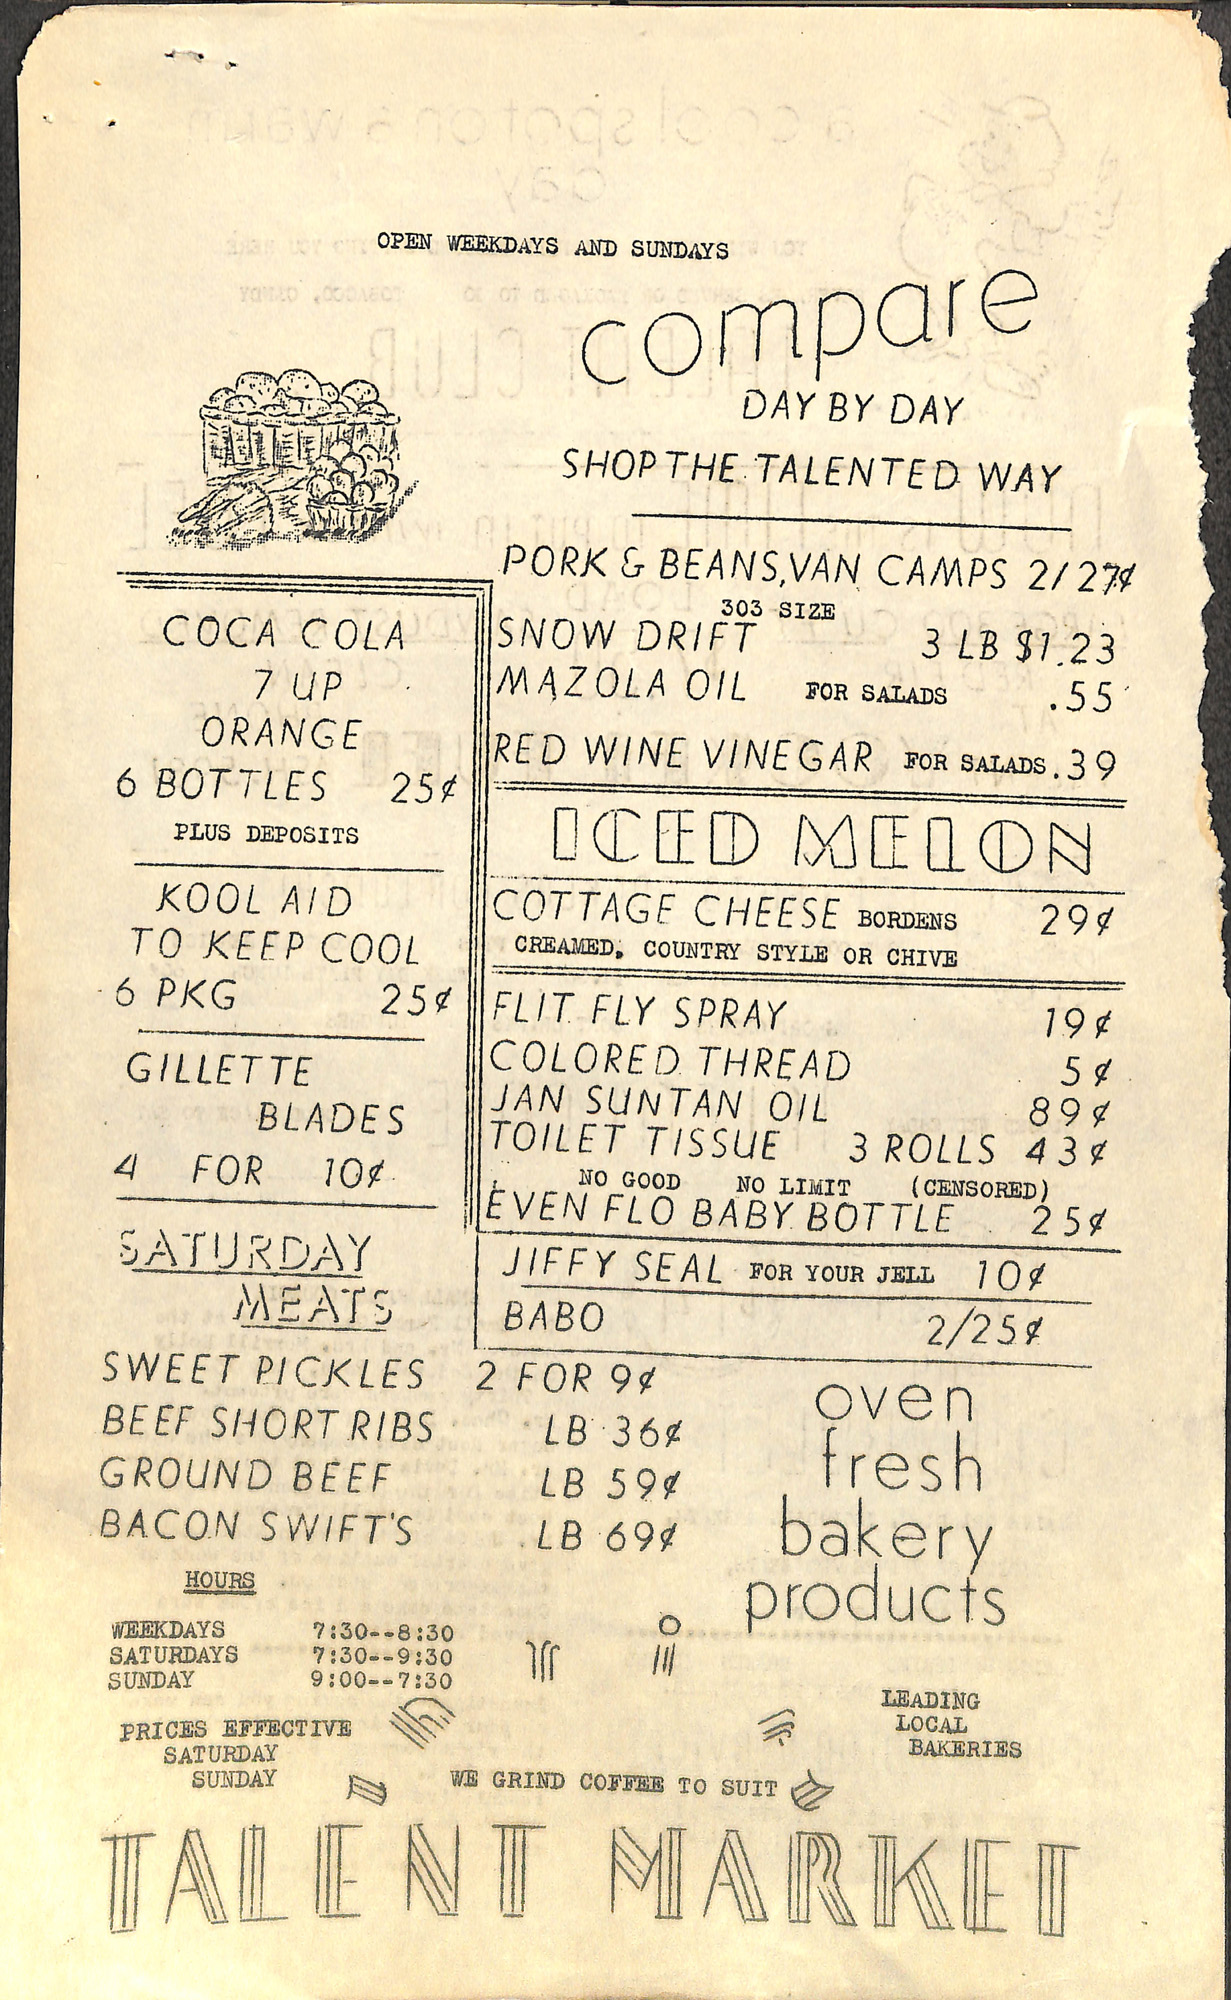 OPEN WEEKDAYS AND SUNDAYS
compare
DAY BY DAY
SHOP THE TALENTED WAY
PORK & BEANS, VAN CAMPS 2/27¢
303 SIZE
SNOW DRIFT 3 LB $1.23
MAZOLA OIL FOR SALADS .55
RED WINE VINEGAR FOR SALADS .39
COCA COLA
7 UP
ORANGE
6 BOTTLES 25¢
PLUS DEPOSITS
KOOL AID
TO KEEP COOL
6 PKG 25¢
GILLETTE
BLADES
4 FOR 10¢
ICED MELON
COTTAGE CHEESE BORDENS 29¢
CREAMED, COUNTRY STYLE OR CHIVE
FLIT FLY SPRAY 19¢
COLORED THREAD 5¢
JAN SUNTAN OIL 89¢
TOILET TISSUE 3 ROLLS 43¢
NO GOOD NO LIMIT (CENSORED)
EVEN FLO BABY BOTTLE 25¢
JIFFY SEAL FOR YOUR JELL 10¢
BABO 2/25¢
SATURDAY
MEATS
SWEET PICKLES 2 FOR 9¢
BEEF SHORT RIBS LB 36¢
GROUND BEEF LB 59¢
BACON SWIFT'S LB 69¢
oven
fresh
bakery
products
HOURS
WEEKDAYS 7:30--8:30
SATURDAYS 7:30--9:30
SUNDAY 9:00--7:30
LEADING
LOCAL
BAKERIES
PRICES EFFECTIVE
SATURDAY
SUNDAY
WE GRIND COFFEE TO SUIT
TALENT MARKET